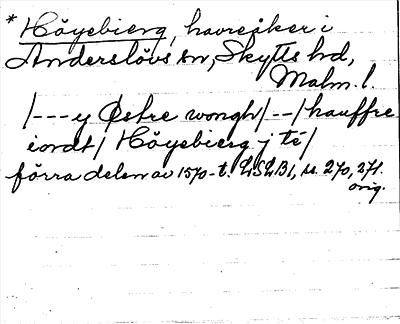 * Höyebierg, havreåker i
Anderslövs sn, Skytts hd,
Malm. l.
/---y Østre wongh/--/hauffre
iordt/ Höyebierg j té/
förra delen av 1570-t. LSLB1, s. 270, 271.
orig.